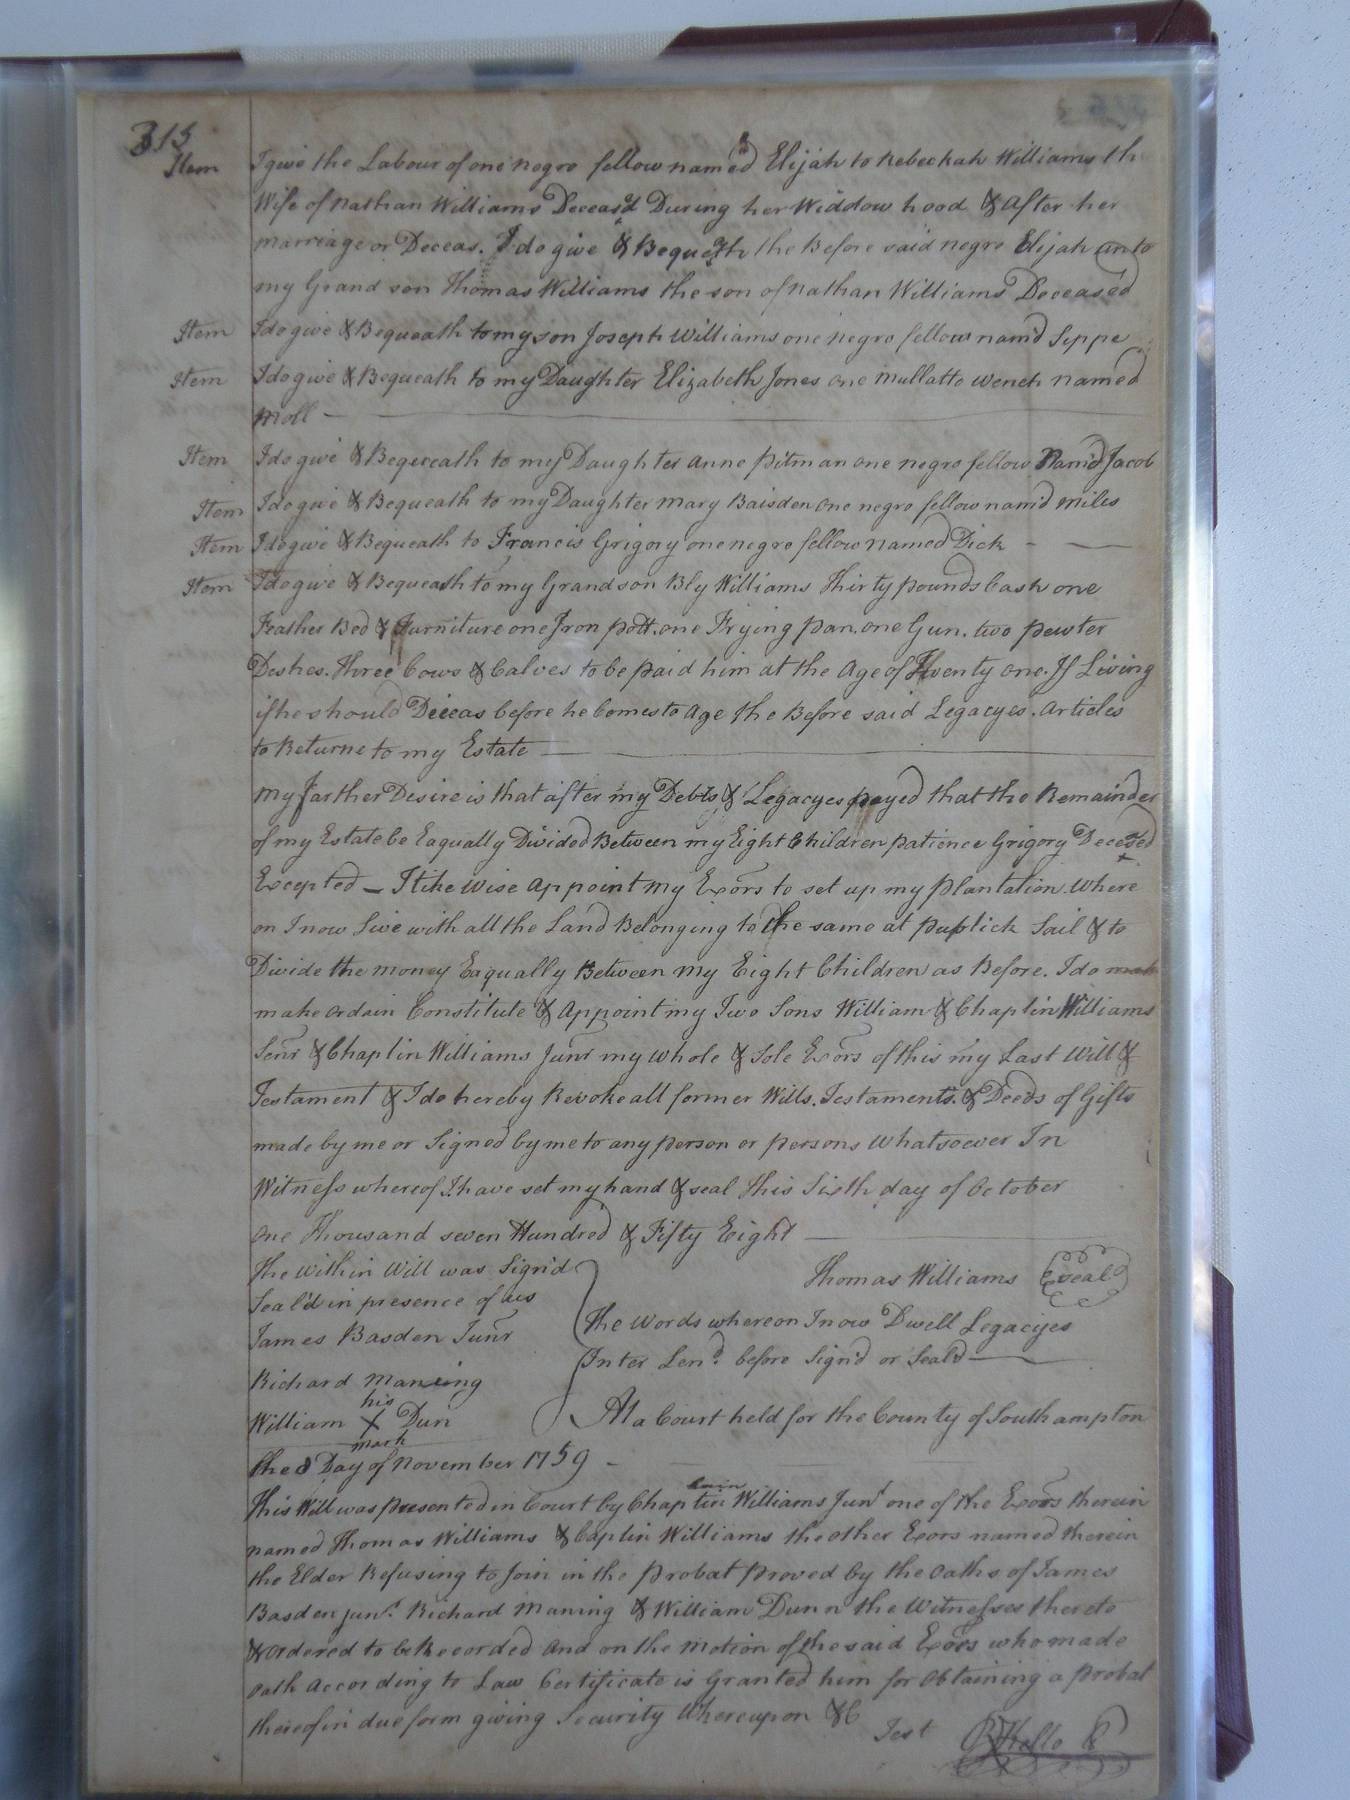 315
Item I give the Labour of one negro fellow named Elijah to Rebeckah Williams th
Wife of Nathan Williams Deceasd During her Widdow hood & After her
marriage or Deceas. I do give & Bequeth the Before said negro Elijah unto
my Grand son Thomas Williams the son of Nathan Williams Deceased
Item I do give & Bequeath to my son Joseph Williams one negro fellow nam'd Seppe
Item I do give & Bequeath to my Daughter Elizabeth Jones one Mullatto wench named
Moll
Item I do give & Bequeath to my Daughter Anne Pitman one negro fellow Nam'd Jacob
Item I do give & Bequeath to my Daughter Mary Baisden one negro fellow nam'd Miles
Item I do give & Bequeath to Francis Grigory one negro fellow named Dick
Item I do give & Bequeath to my Grandson Bly Williams Thirty pounds Cash one
Feather Bed & Furniture one Iron pott. one Frying pan. one Gun. two pewter
Deshes. Three Cows & Calves to be paid him at the Age of Twenty one. If Living
if he should Deceas before he Comes to Age the Before said Legacyes. Articles
to Returne to my Estate
My farther Desire is that after my Debts & Legacyes payed that the Remainder
of my Estate be Eaqually Divided Between my Eight Children patience Grigory Deceased
Excepted - I like wise Appoint my Exors to set up my plantation. Where
on I now Live with all the Land Belonging to the same at publick Sail & to
Divide the money Eaqually Between my Eight Children as Before. I do mak
make ordain Constitute & Appoint my Two Sons William & Chaplin Williams
Senr & Chaplin Williams Junr my whole & Sole Exors of this my Last Will &
Testament & I do hereby Revoke all former Wills. Testaments. & Deeds of Gifts
made by me or Signed by me to any person or persons Whatsoever In
Witness whereof I have set my hand & seal this Sixth day of October
one Thousand seven Hundred & Fifty Eight
The Within Will was Sign'd
Seal'd in presence of us
James Basden Junr
Richard Maning
his
William X Dun
mark
Thomas Williams seal
The Words whereon I now Dwell Legacyes
Inter Lend before Sign'd or Seal'd
At a Court held for the County of Southampton
the 8 Day of November 1759
This Will was presented in Court by Chaplin Williams Junr one of the Exors therein
named Thomas Williams & Caplin Williams the other Exors named therein
the Elder Refusing to Join in the probat proved by the oaths of James
Basden junr. Richard Maning & William Dunn the Witnesses thereto
& ordered to be Recorded and on the Motion of the said Exors who made
oath According to Law Certificate is Granted him for Obtaining a probat
thereof in due form giving Security Whereupon &C
Test